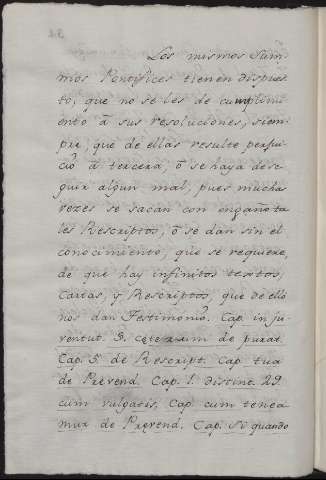 Los mismos Sum̃
mos Pontifices tienen dispues
to, que no se les de cumplimi
ento â sus resoluciones, siem
pre, que de ellas resulte perjui
ciô â tercera, ô se haya de se
guir algun mal, pues muchas
vezes se sacan con engaño ta
les Rescriptos, ô se dan sin el
conocimiento, que se requiere,
de que hay infinitos textos,
Cartas, y Rescriptos, que de ello
nos dan Testimoniô. Cap. in ju
ventut. §. cęterum de purat.
Cap. 5. de Rescript. Cap. tua
de Prębend. Cap. 1. distint. 29.
cum vulgatis, Cap. cum tenea
mur de Pręvend. Cap. si quando